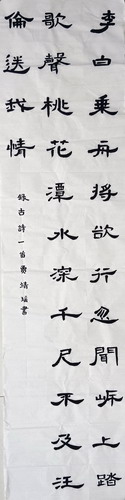 李白乗舟將欲行忽聞岍上踏
歌聲桃花潭水深千尺不及汪
倫送我情
録古詩一首
書